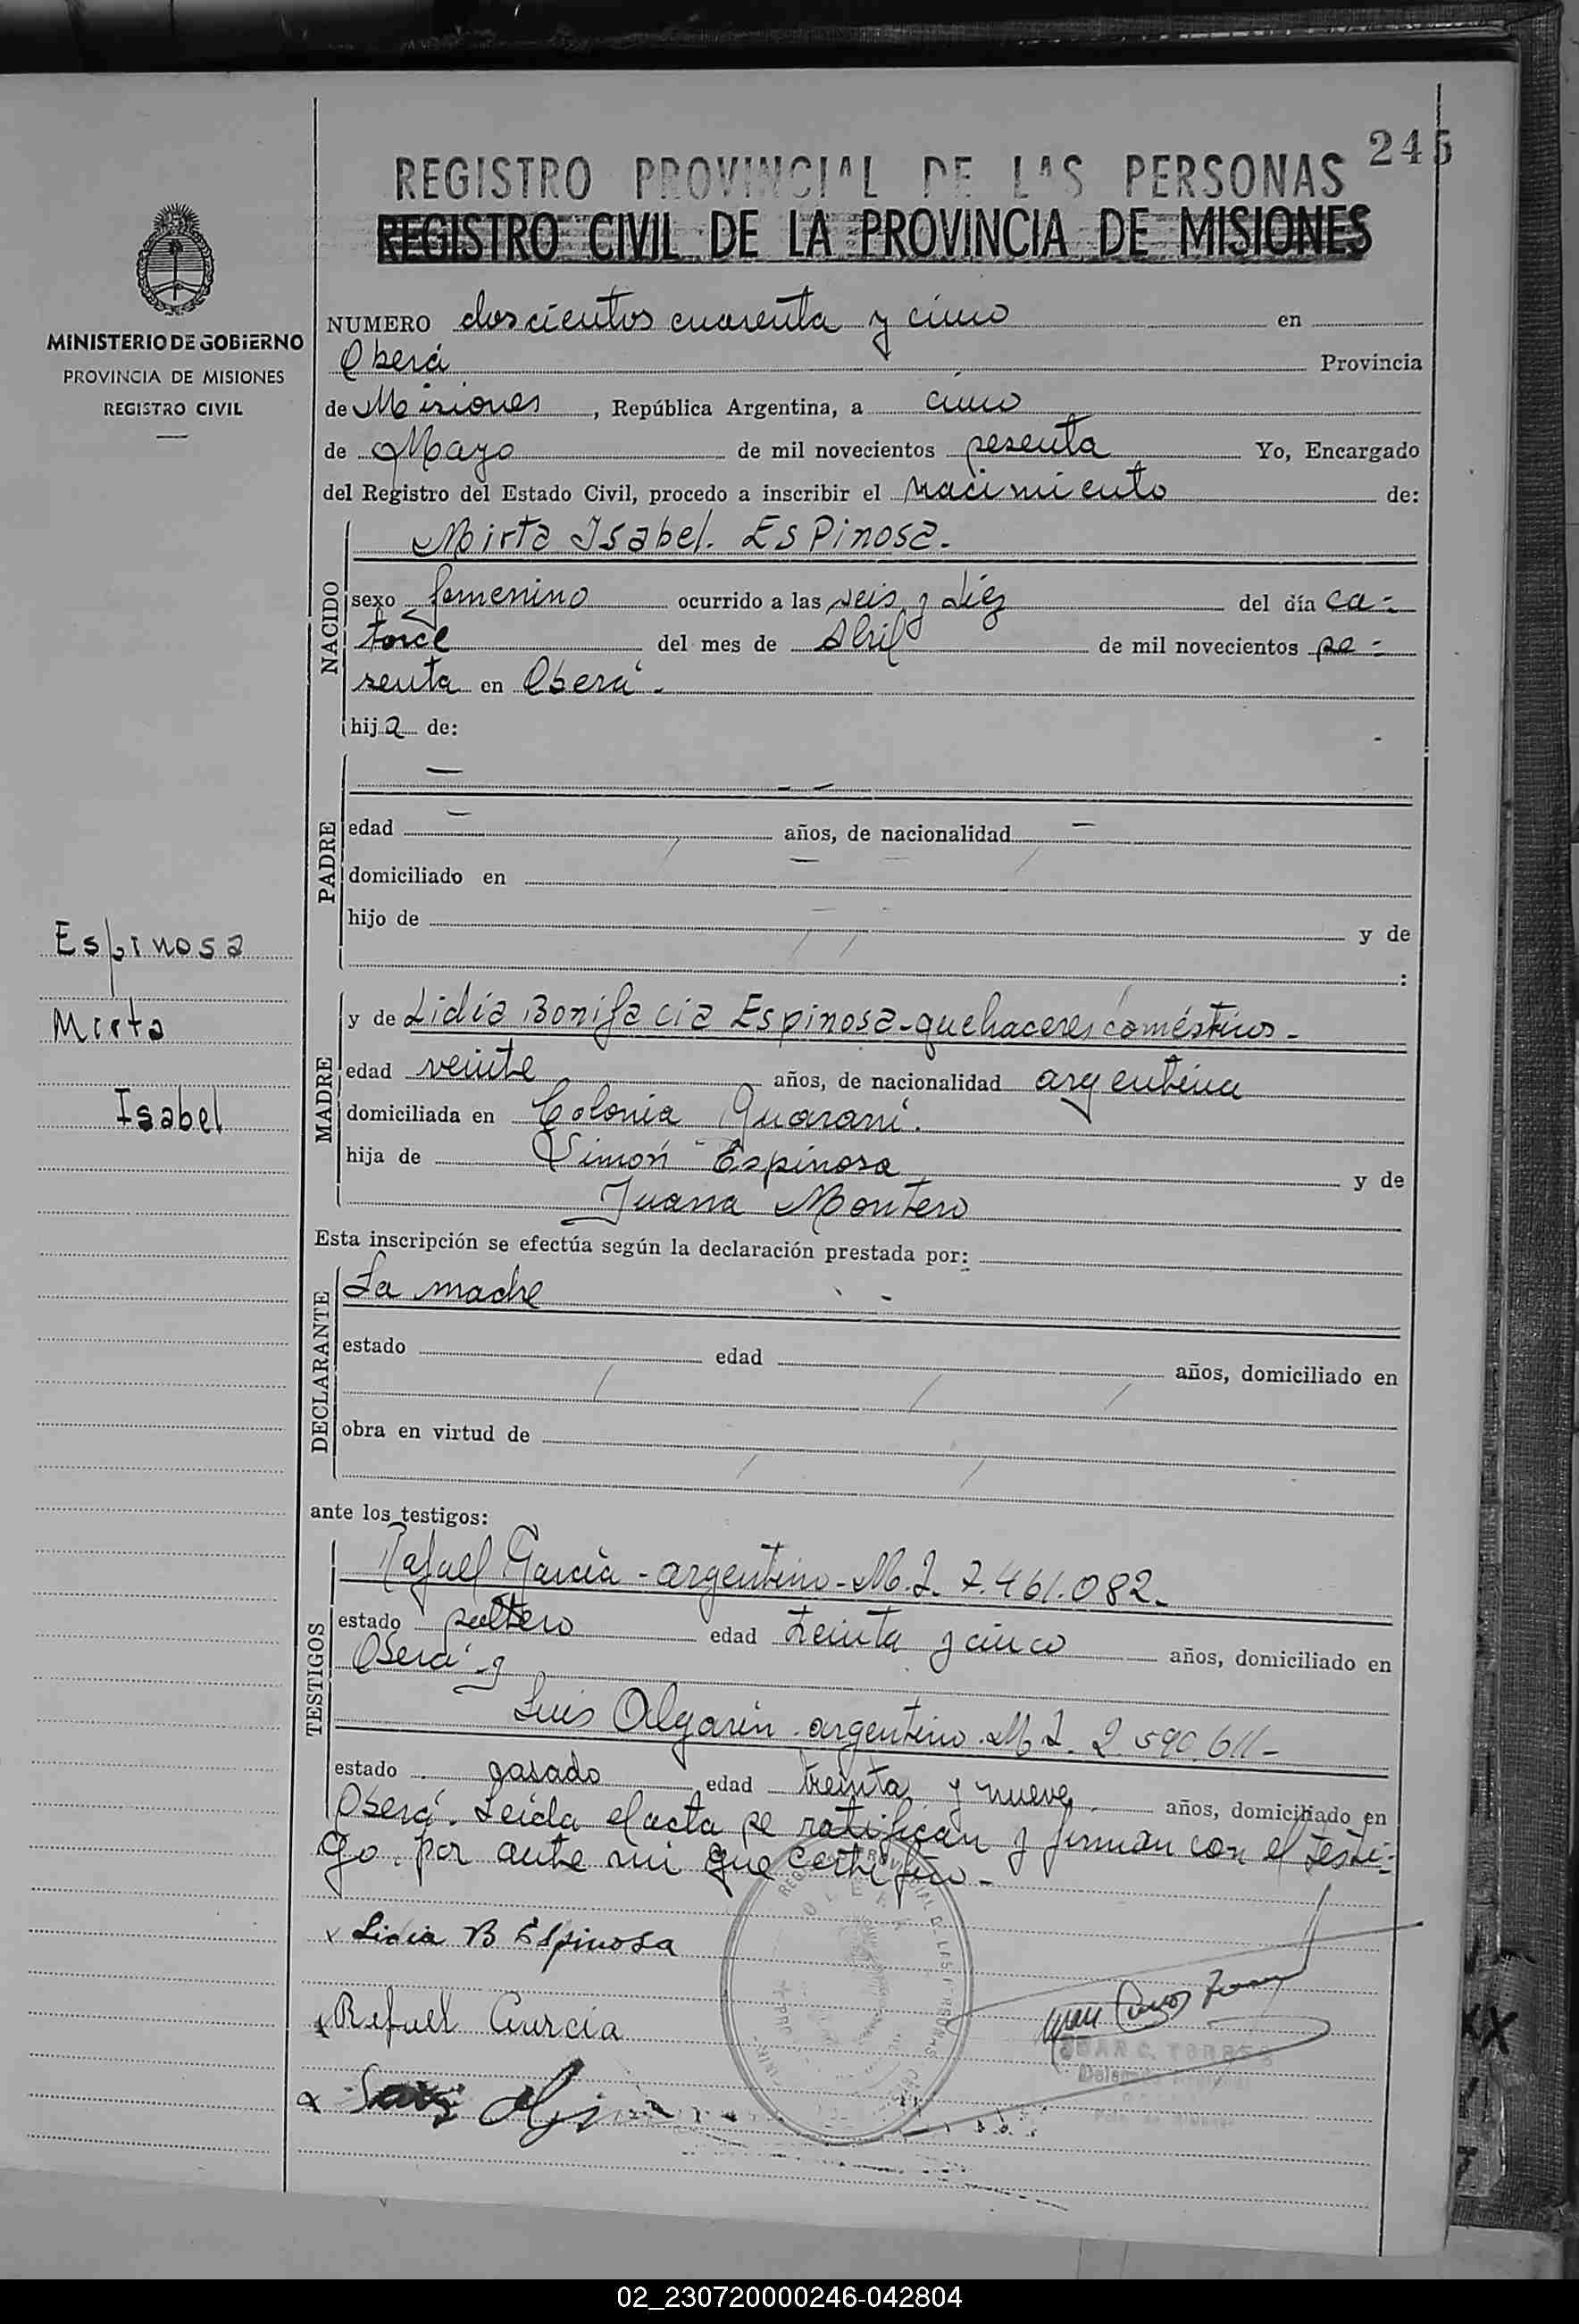 245
REGISTRO PROVINCIAL DE LAS PERSONAS
REGISTRO CIVIL DE LA PROVINCIA DE MISIONES
MINISTERIO DE GOBIERNO
PROVINCIA DE MISIONES
REGISTRO CIVIL
NUMERO doscientos cuarenta y cinco en
Oberá Provincia
de Misiones, República Argentina, a cinco
de Mayo de mil novecientos sesenta Yo, Encargado
del Registro del Estado Civil, procedo a inscribir el nacimiento de:
NACIDO
Mirta Isabel. Espinosa.
sexo femenino ocurrido a las seis y diez del día ca-
torce del mes de Abril de mil novecientos se-
senta en Oberá.
hija de:
PADRE
edad años, de nacionalidad
domiciliado en
hijo de y de
:
Espinosa
Mirta
Isabel
MADRE
y de Lidia Bonifacia Espinosa - quehaceres coméstivos -
edad veinte años, de nacionalidad argentina
domiciliada en Colonia Guaraní.
hija de Simón Espinosa y de
Juana Montero
Esta inscripción se efectúa según la declaración prestada por:
DECLARANTE
La madre
estado edad años, domiciliado en
obra en virtud de
ante los testigos:
TESTIGOS
Rafael García - argentino - M.I. 7.461.082.
estado soltero edad treinta y cinco años, domiciliado en
Oberá y
Luis Algarin. argentino. M I. 2.590.611 -
estado casado edad treinta y nueve años, domiciliado en
Oberá. Leída el acta se ratifican y firman con el testi-
go. por ante mi que certifico. -
x Lidia B Espinosa
x Rafael Garcia
x Luis
Juan Carlos Torres
JUAN C. TORRES
02_230720000246-042804